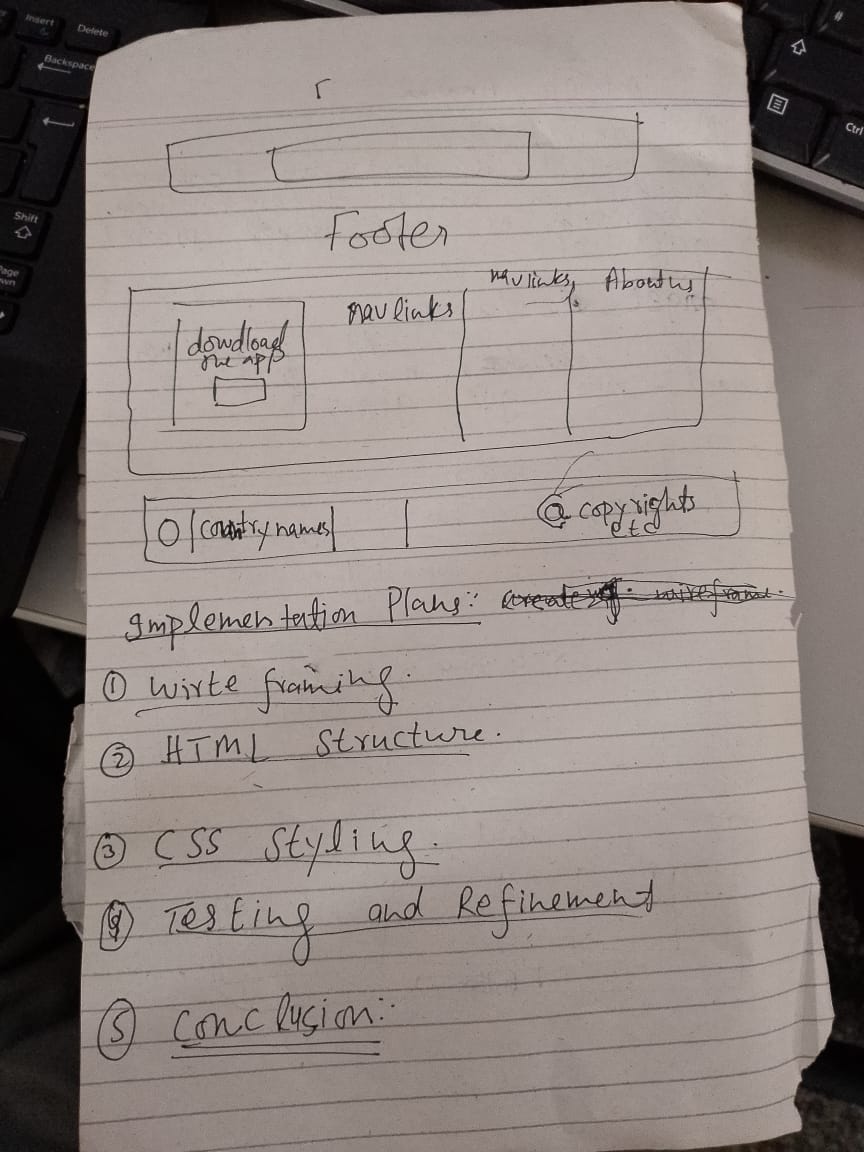 Insert
Delete
Backspace
Shift
Page
#
Ctrl
Footer
nav links
nav links
About us
dowdload
the app
country names
@ copyrights
etc
Implementation Plans:
① Wirte framing.
② HTML Structure.
③ CSS Styling.
④ Testing and Refinement
⑤ Conclusion: